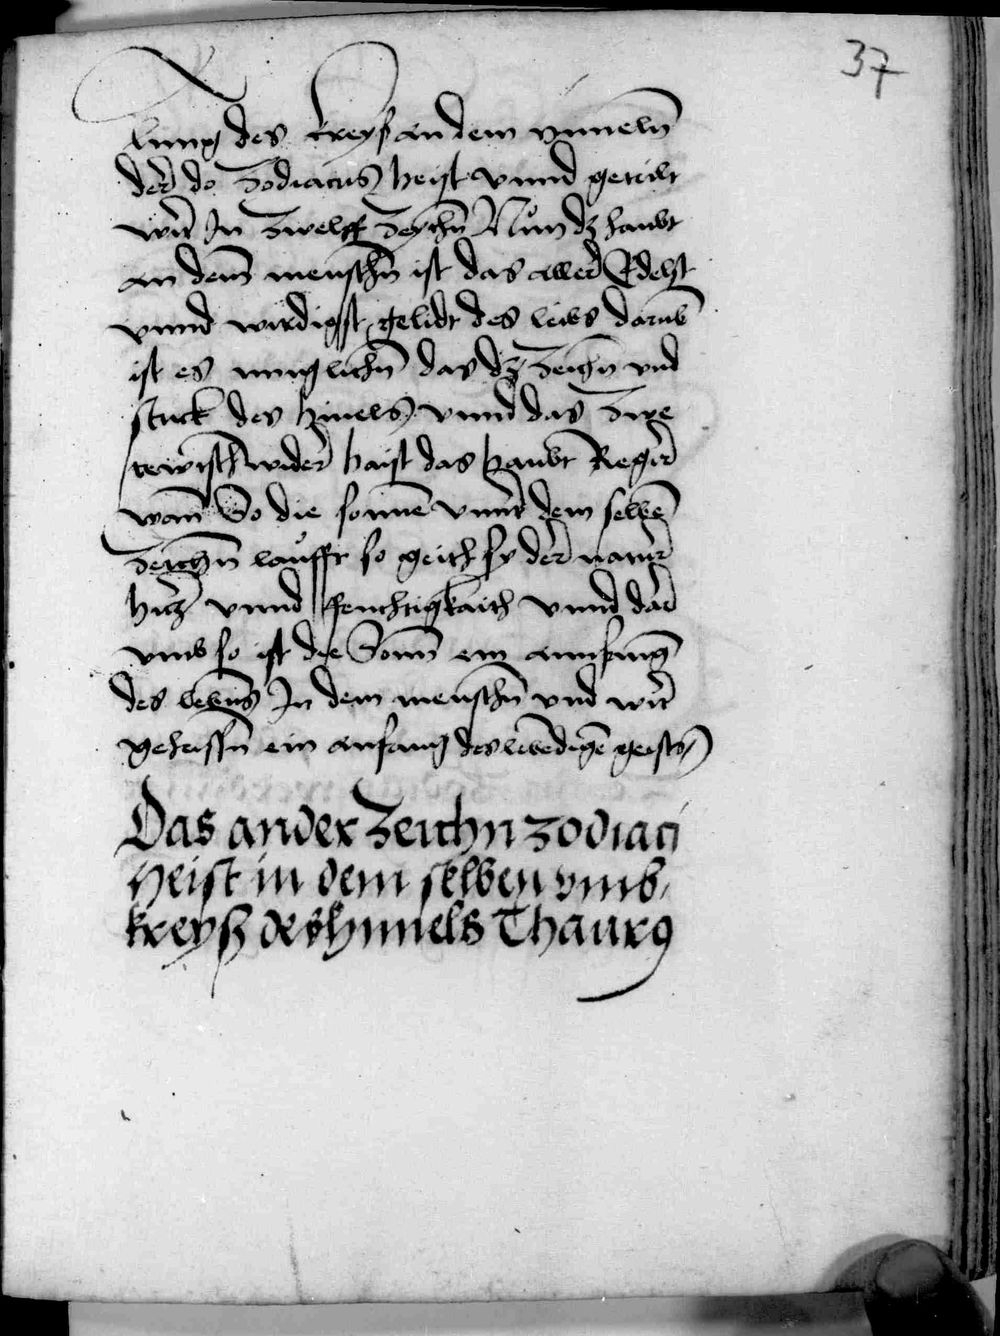 37
kung des kreyß an dem himeln
der do Zodiacus heist vnnd geteilt
wirt In Zwelff Zeychn Nun dz haubt
an dem menschn ist das aller Edelst
vnnd wirdigst gelidt des leibs darumb
ist es muglichn das dz Zeichn vnd
stuck des himels vnnd das
wider haist das haubt Regirt
wann So die sonne vnnter dem selben
Zeichn laufft so geith sy der natur
hitz vnnd feuchtigkaith vnnd dar
vmb so ist die Sonn ein annfanng
des lebens In dem menschn vnd wirt
geheissn ein anfang des lebendigen geists
Das ander Zeichn zodiaci
Heist in dem selben vmb,
kreyß des himels Thaurꝯ